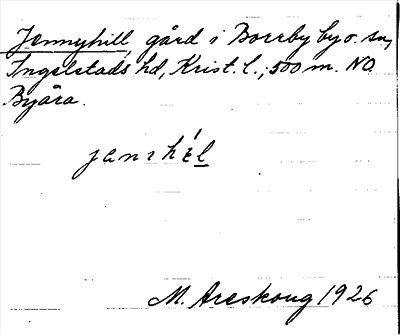 Jennyhill, gård i Borrby by o. sn,
Ingelstads hd, Krist. l.; 500 m. NO
Byåra.
M. Areskoug 1926